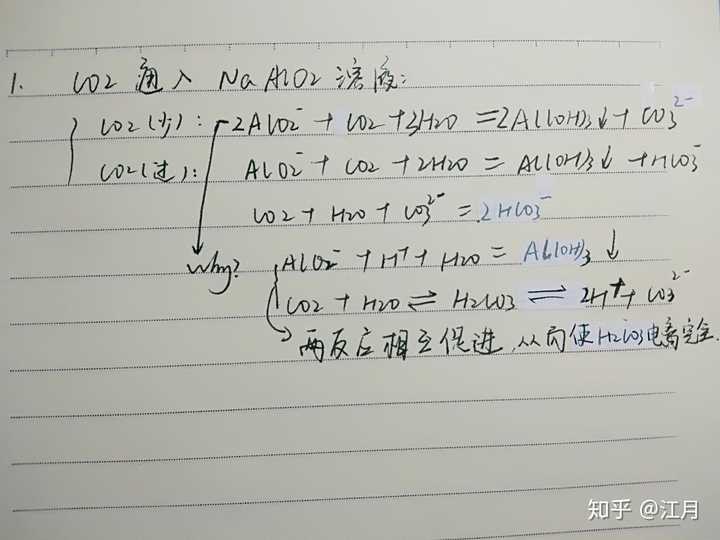 1. CO2 通入 NaAlO2 溶液:
CO2(少): 2AlO2⁻ + CO2 + 3H2O = 2Al(OH)3↓ + CO3²⁻
CO2(过): AlO2⁻ + CO2 + 2H2O = Al(OH)3↓ + HCO3⁻
CO2 + H2O + CO3²⁻ = 2HCO3⁻
Why? AlO2⁻ + H⁺ + H2O = Al(OH)3↓
CO2 + H2O ⇌ H2CO3 ⇌ 2H⁺ + CO3²⁻
两反应相互促进,从而使H2CO3电离完全.
知乎 @江月